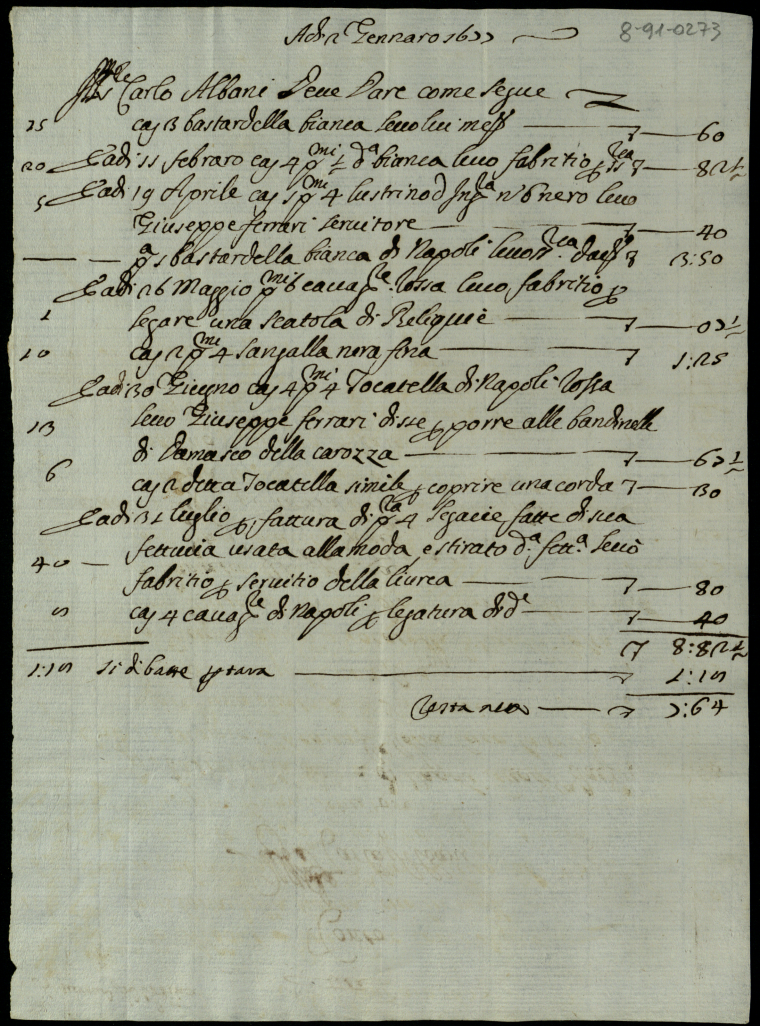 Adi 2 Gennaro 1677
8-91-0273
Carlo Albani Deve Dare come segue
15 caj 3 bastardella bianca levo lui mess 7 60
20 E adi 11 febraro caj 4 pmi 1/2 da bianca levo fabritio 7 82 1/2
5 E adi 19 Aprile caj 1 pmi 4 lustrino d Inga n 6 nero levo
Giuseppe ferrari servitore 7 40
pa 1 bastardella bianca di Napoli levo 3:50
E adi 26 Maggio pmi 6 cavaga rossa levo fabritio p
1 legare una scatola di Reliquie 7 07 1/2
10 caj 2 pmi 4 sangalla nera fina 7 1:25
E adi 30 Giugno caj 4 pmi 4 Tocatella di Napoli rossa
13 levo Giuseppe ferrari disse p porre alle bandinelle
di Damasco della carozza 7 67 1/2
6 caj 2 detta Tocatella simile p coprire una corda 7 30
E adi 31 luglio p fattura di pza 4 legacie fatte di sua
40 fettuccia usata alla moda, e stirato da fetta levò
fabritio p servitio della livrea 7 80
5 caj 4 cavaga di Napoli p legatura di de 7 40
7 8:82 1/2
1:15 si di batte p tara 7 1:15
Resta netto 7 7:64